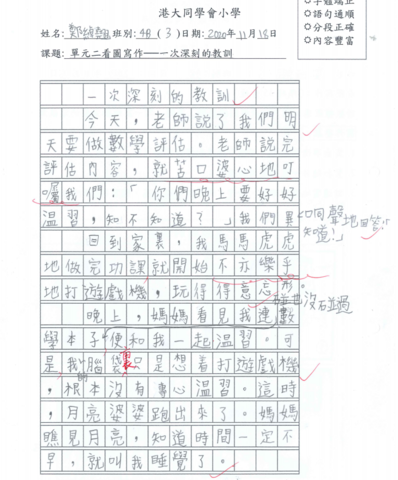 港大同學會小學
字體端正
語句通順
分段正確
內容豐富
姓名: 班別: 4B ( 3 ) 日期: 2020年11月18日
課題: 單元二看圖寫作——一次深刻的教訓
一次深刻的教訓
今天,老師說了我們明
天要做數學評估。老師說完
評估內容,就苦口婆心地叮
囑我們:「你們晚上要好好
溫習,知不知道?」我們異口同聲地回答:「
知道!」
回到家裏,我馬馬虎虎
地做完功課就開始不亦樂乎
地打遊戲機,玩得得意忘形。
晚上,媽媽看見我連數碰也沒碰過
學本子便和我一起溫習。可
是,我腦袋裏只是想着打遊戲機
,根本沒有專心溫習。這時
,月亮婆婆跑出來了。媽媽
瞧見月亮,知道時間一定不
早,就叫我睡覺了。